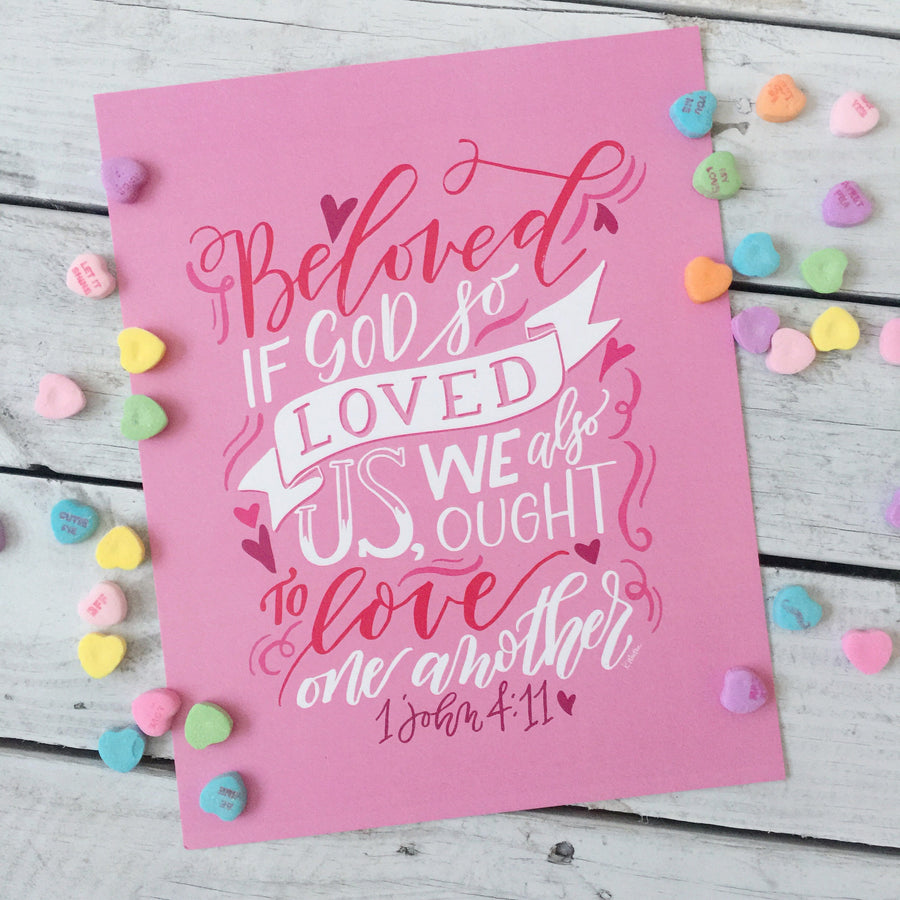 Beloved
IF GOD so
LOVED
US, WE also
OUGHT
TO love
one another
1 john 4:11
LET IT
SHINE
CUTIE
PIE
BFF